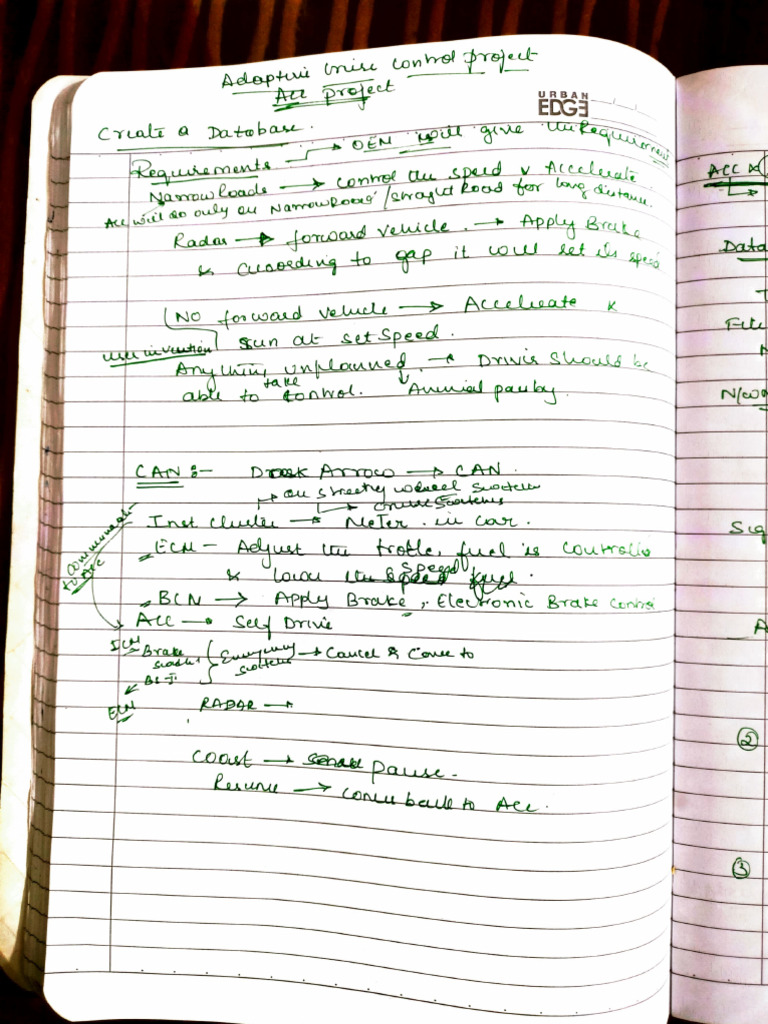 Adaptive Cruise Control Project
Acc Project
URBAN
EDGE
Create a Database.
Requirements → OEM will give the Requirement
Narrow Roads → control the speed & Accelerate.
Acc will do only on Narrow Road / straight Road for long distance.
Radar → forward vehicle. → Apply Brake
& according to gap it will set its speed
No forward vehicle → Accelerate &
run at set speed.
Anything unplanned → Driver should be
able to take control. ↓ Animal pass by.
CAN :- → CAN.
→ on steering wheel switches
→ cruise switches
Inst cluster → Meter. in car.
ECM - Adjust the , fuel is
& lower the speed fuel.
BCM → Apply Brake, Electronic Brake Control
Acc → Self Drive
Brake Emergency → Cancel & Come to
switches
ECM RADAR →
Coast → Pause.
Resume → Come back to Acc.
ACC
Data
N/wo
Sig
A
②
③